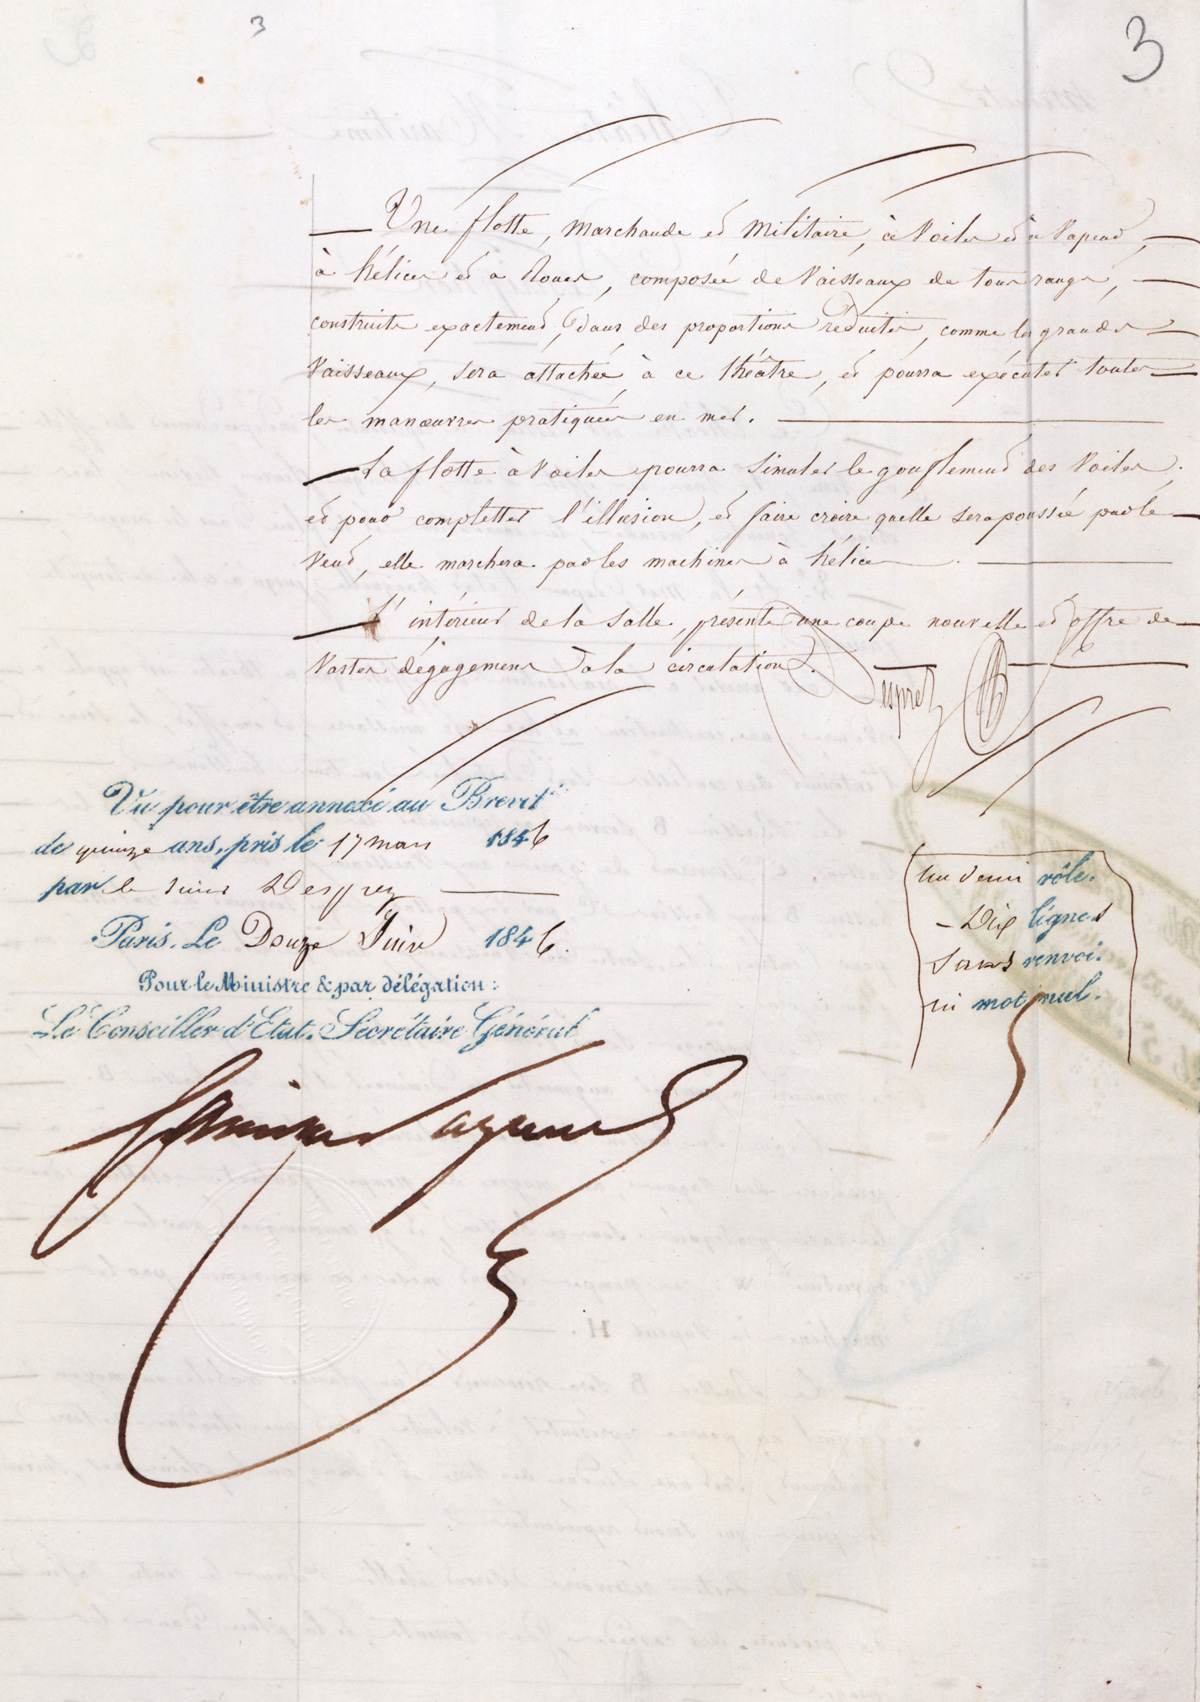 3
3
Une flotte, marchande et militaire, à voiles et à vapeur,
à hélices et a roues, composée de vaisseaux de tous rangs,
construits exactement, dans des proportions réduites, comme les grands
vaisseaux, sera attachée à ce théâtre, et pourra exécuter toutes
les manœuvres pratiquées en mer.
La flotte à voiles pourra simuler le gonflement des voiles,
et pour completter l'illusion, et faire croire quelle sera poussée par le
vent, elle marchera par les machines à hélices.
L'intérieur de la salle, présente une coupe nouvelle et offre de
vastes dégagemens à la circulation.
Desprez
Vu pour être annexé au Brevet
de quinze ans, pris le 17 mars 1846
par le sieur Desprez
Paris, Le Douze Juin 1846.
Pour le Ministre & par délégation:
Le Conseiller d'Etat, Secrétaire Général
un demi rôle.
Dix lignes
sans renvoi.
ni mot nul.